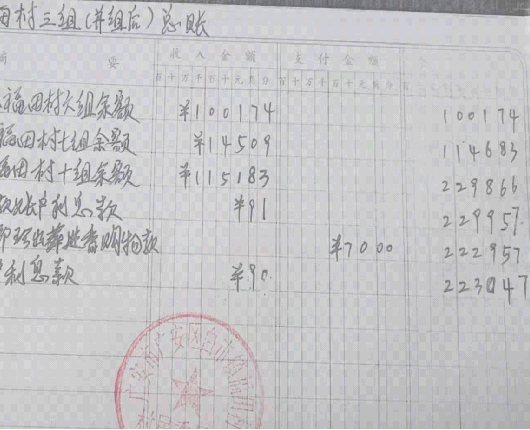 田村三组(并组后)总账
摘 要 收入金额 支付金额
百十万千百十元角分 百十万千百十元角分
福田村六组余额 ¥100174 100174
福田村七组余额 ¥14509 114683
福田村十组余额 ¥115183 229866
账户利息款 ¥91 229957
购物款 ¥7000 222957
利息款 ¥90 223047